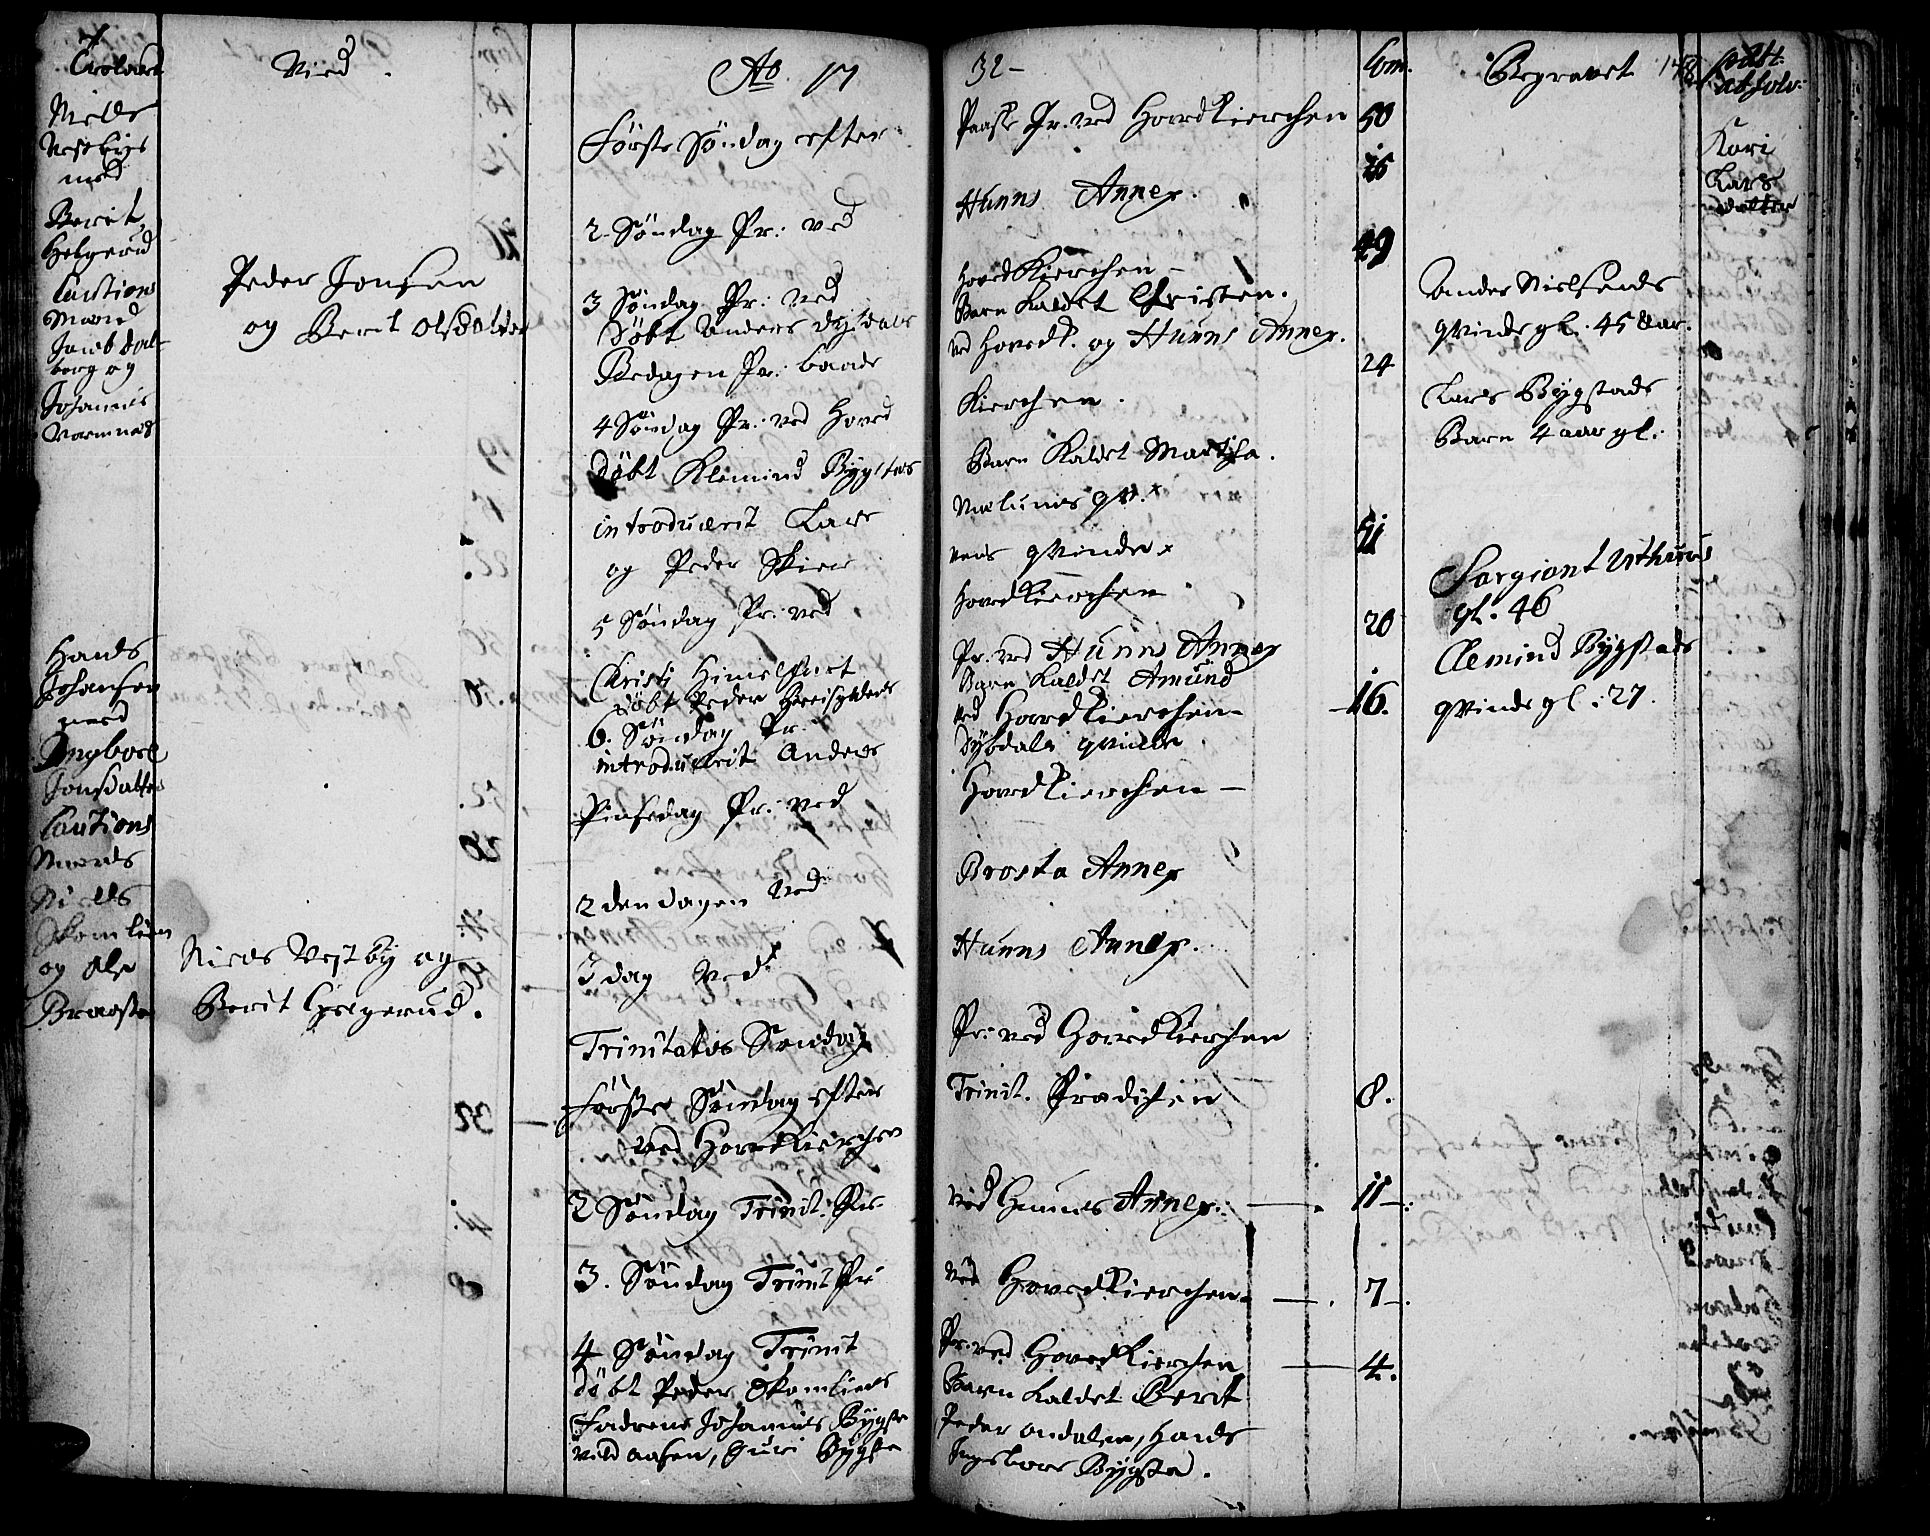 Trolovet
Niells
Vestbÿe
med
Berit
Helgerud
Cautions
Mænd
Jacob Dal-
berg og
Johannis
Varmnæs
Hands
Johansen
med
Ingbor
Jonsdatter
Cautions
Mænds
Niells
Skomlien
og Ole
Braaste
Vied.
Peder Jonsen
og Berit Olsdatter
Niels Vestby og
Berit Helgerud.
Ao. 17
Første Søndag efter
2 Søndag Pr: ved
3 Søndag Pr: ved
døbt Anders Dysdals
Bededagen Pr: baade
4 Søndag Pr: ved Hoved
døbt Klemind Bygstas
introducerit Lars
og Peder Skien
5 Søndag Pr: ved
Christi Himelfart
døbt Peder
6. Søndag Pr:
introducerit Anders
Pintsedag Pr: ved
2den dagen ved
3 dag ved
Trinitatis Søndag
Første Søndag efter
ved Hovedkierchen
2 Søndag Trinit: Pr:
3. Søndag Trinit Pr
4 Søndag Trinit
døbt Peder Skomliens
Fadrene Johannis Bygste
vild aasen, Guri Bygste
32-
Paaske Pr. ved Hovedkierchen
Hunns Annex.
Hovedkierchen-
Barn kaldet Christen.
ved Hovedk. og Hunns Annex.
Kierchen.
Barn kaldet Marthe.
Mælums qv.
vens qvinde
Hovedkierchen
Pr. ved Hunns Annex
Barn kaldet Amund
ved Hovedkierchen-
Dysdals qvinde
Hovedkierchen-
Brosta Annex
Hunns Annex.
Pr: ved Hovedkierchen
Trinit. Prædichen
ved Hunns Annex.
ved Hovedkierchen.
Pr. ved Hovedkierchen
Barn kaldet Berit
Peder ondalen, Hands
Ingebore Bygsta.
Com.
50
16
49
24
51
20
16.
8.
11
7
4.
Begravet
Anders Nielsens
qvinde gl. 45 aar.
Lars Bygstads
Barn 4 aar gl:
Sargiant
gl. 46
Clemind Bygstads
qvinde gl: 27.
publ.
absolv:
Kari
Lars
datter